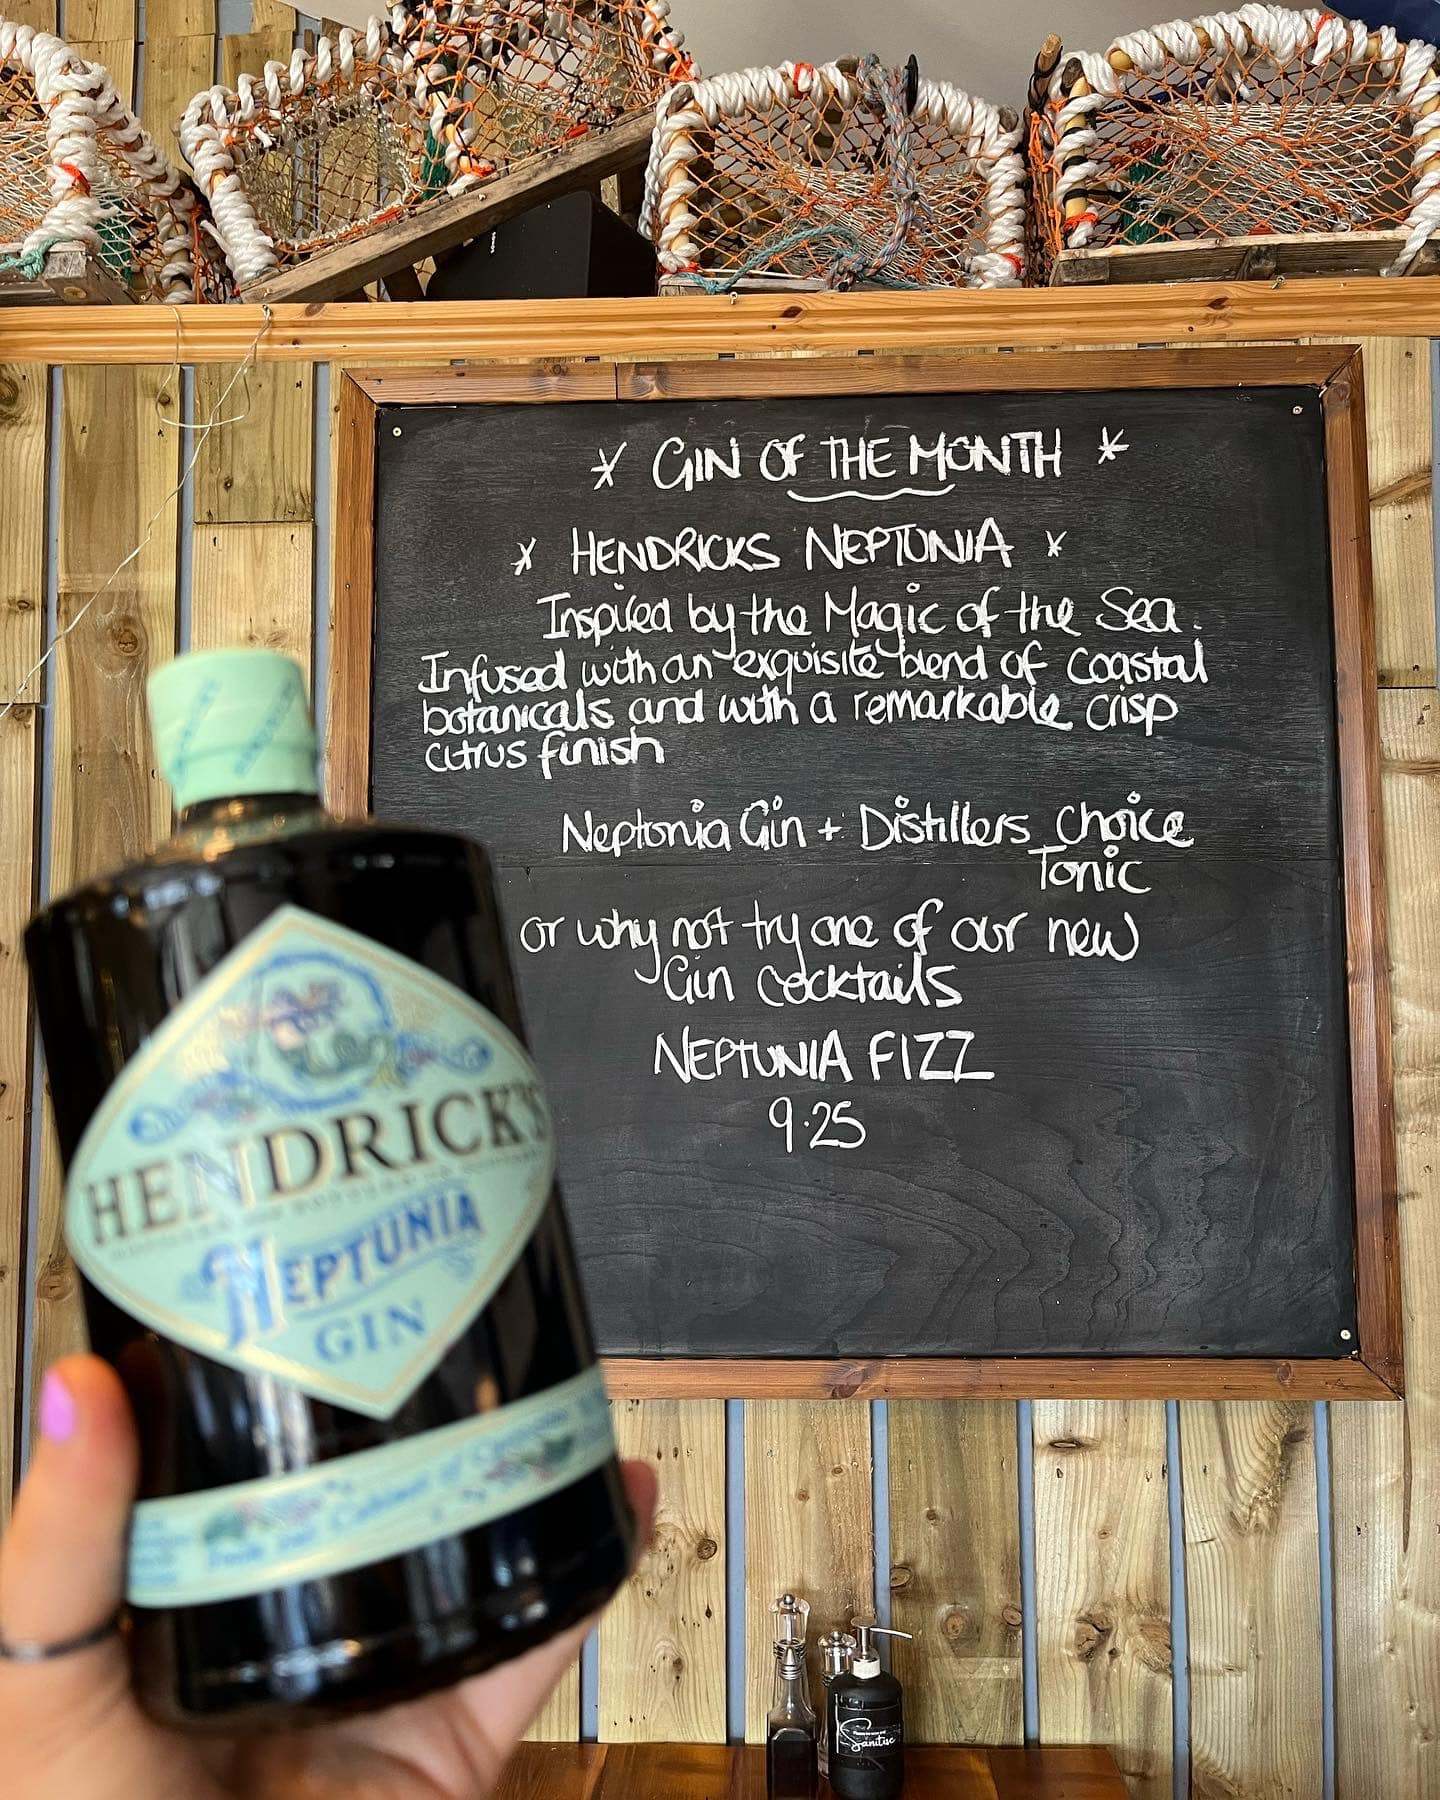 * GIN OF THE MONTH *
* HENDRICKS NEPTUNIA *
Inspired by the Magic of the Sea.
Infused with an exquisite blend of coastal
botanicals and with a remarkable crisp
citrus finish
Neptonia Gin + Distillers Choice
Tonic
or why not try one of our new
Gin cocktails
NEPTUNIA FIZZ
9.25
HENDRICK'S
NEPTUNIA
GIN
from our Cabinet of
Sanitise